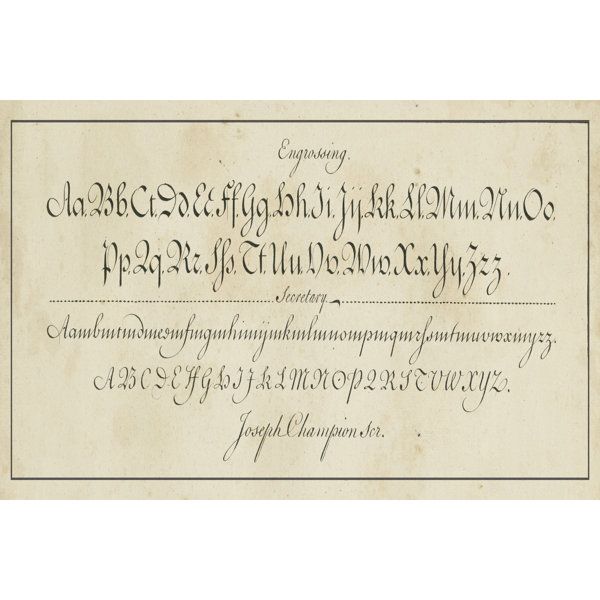 Engrossing.
Aa.Bb.Ct.Dd.Ee.Ff.Gg.Hh.Ii.Jj.Kk.Ll.Mm.Nn.Oo.
Pp.Qq.Rr.Sſs.Tt.Uu.Vv.Ww.Xx.Yy.Zzz.
Secretary
Aambmcmdmemfmgmhimijmkmlmnompmqmrſsmtmuvwxmyzz.
ABCDEFfGHIJKLMNOPQRSTUVWXYZ.
Joseph Champion Scr.